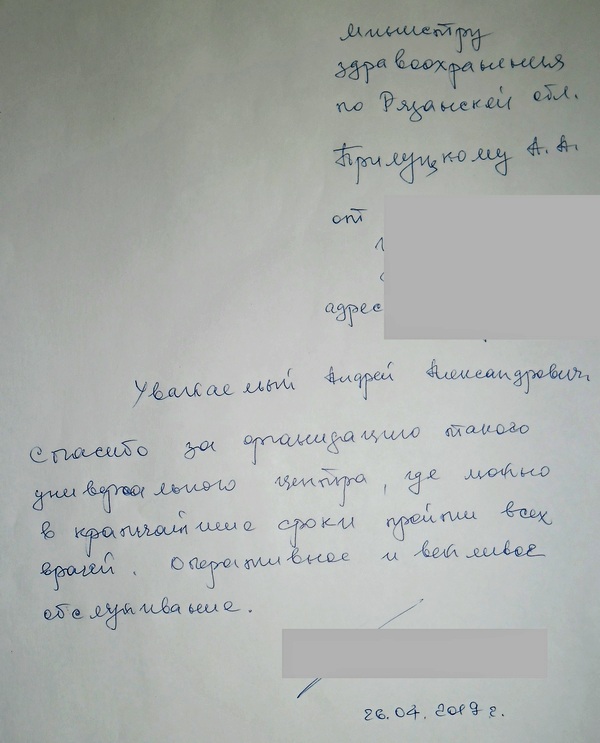 министру
здравоохранения
по Рязанской обл.
Прилуцкому А. А.
от
адрес
Уважаемый Андрей Александрович,
Спасибо за организацию такого
универсального центра, где можно
в кратчайшие сроки пройти всех
врачей. Оперативное и вежливое
обслуживание.
26.04.2019 г.